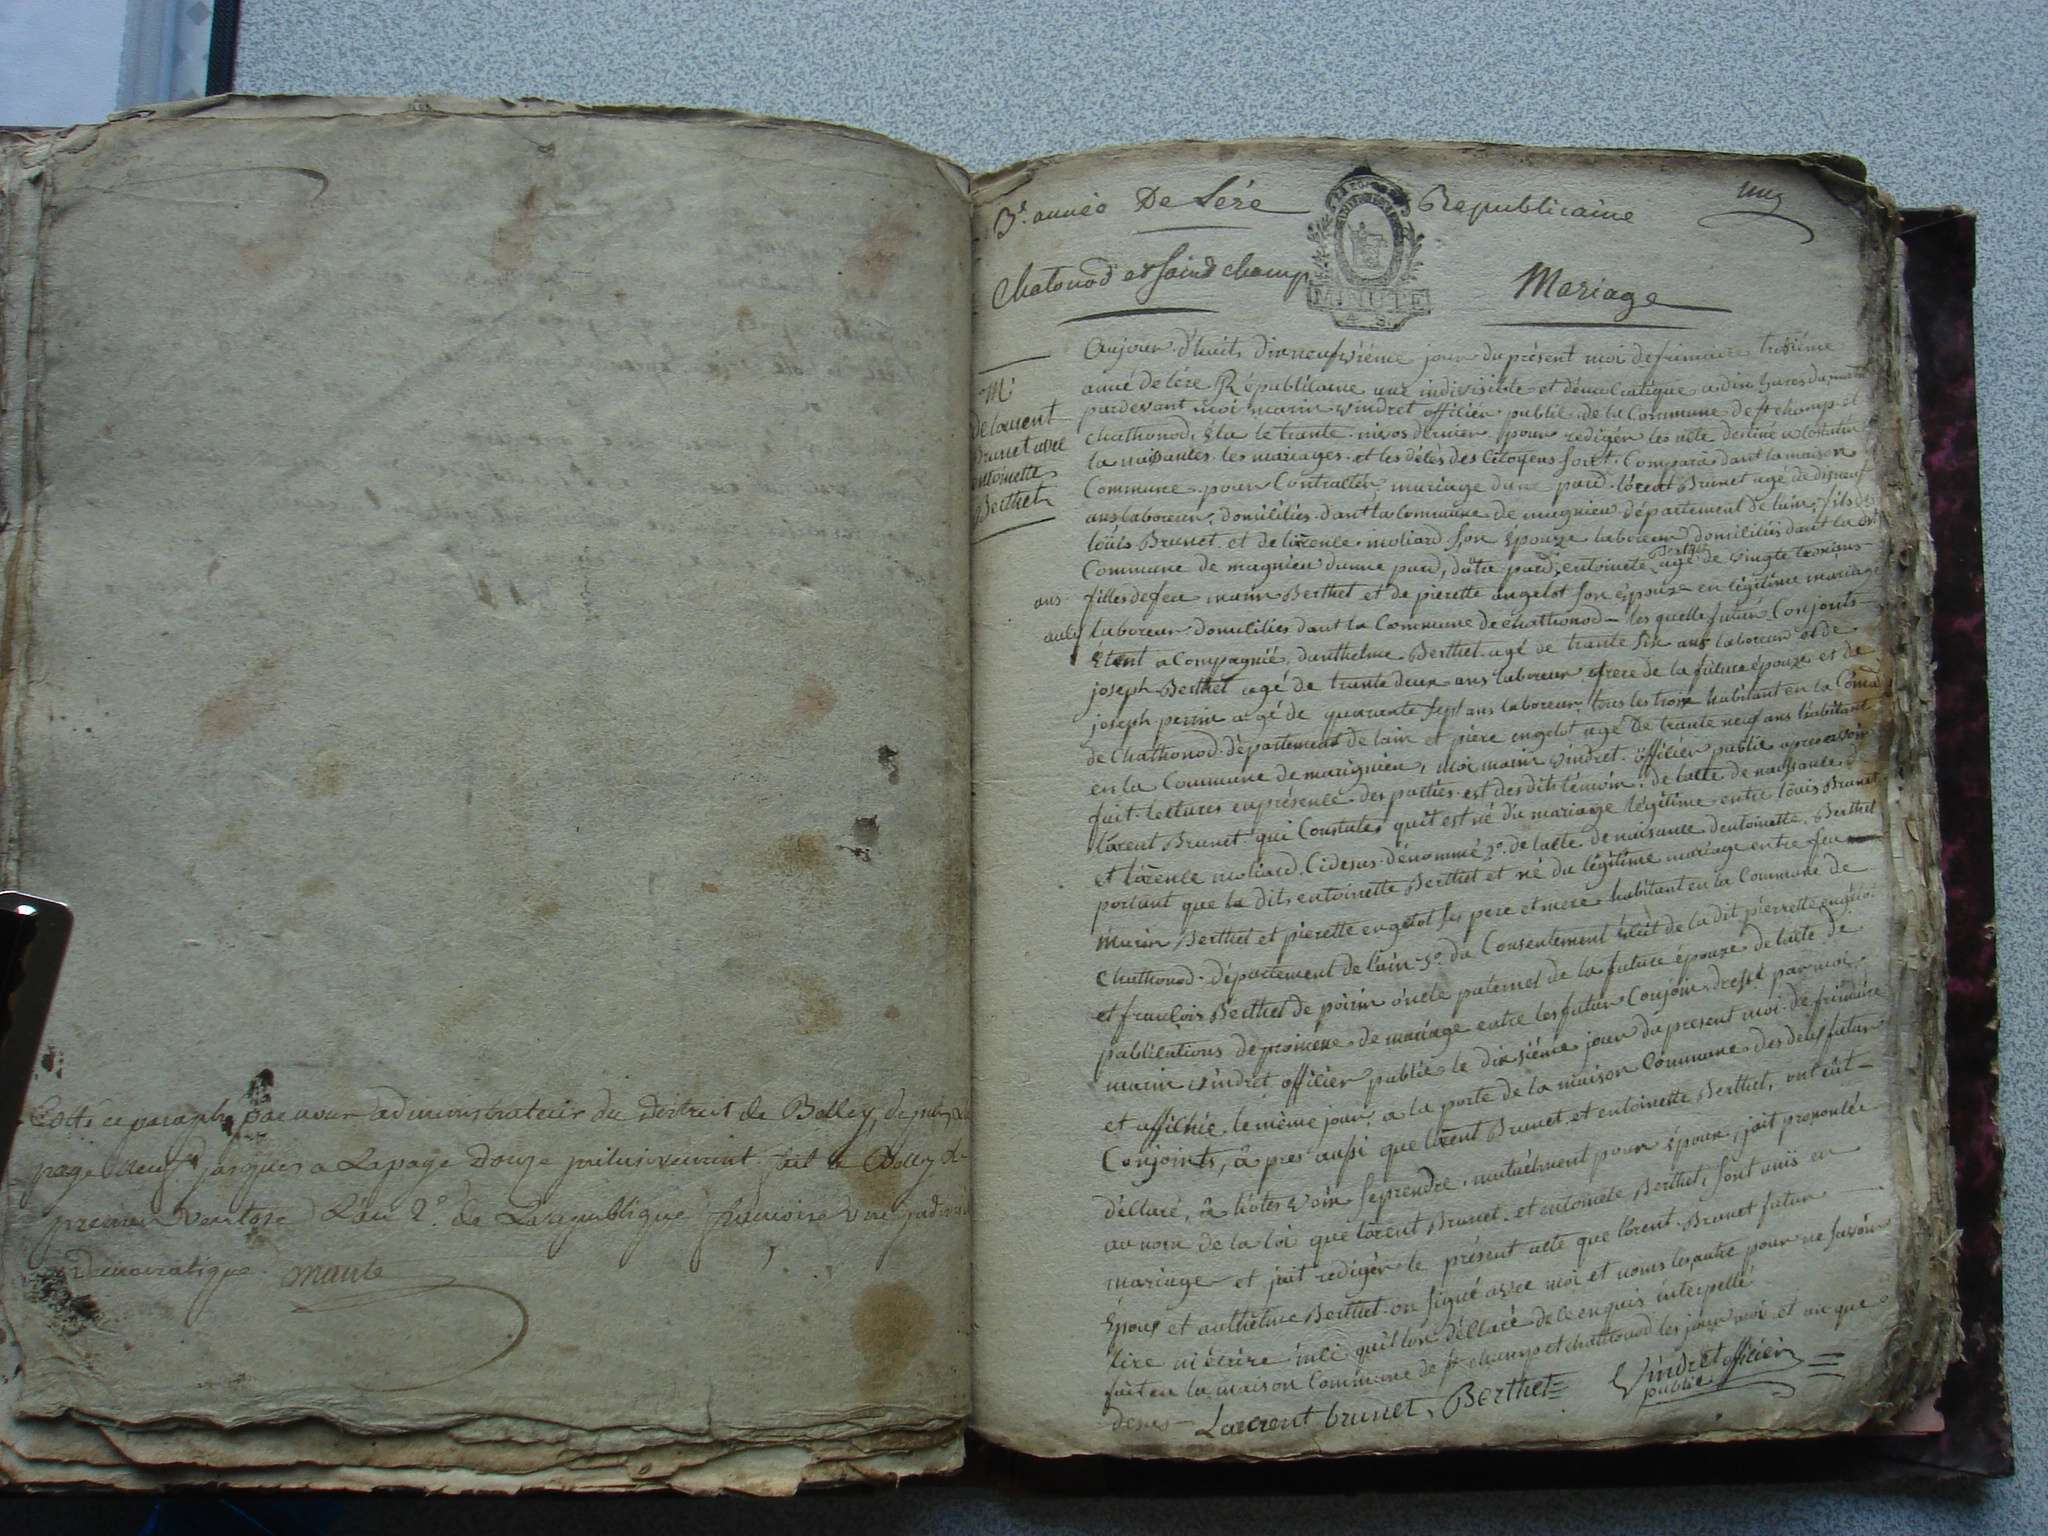 Cotté et paraphé par nous administrateur du district de Belley, depuis la
page neuf jusques a La page Douze inclusivement fait a Belley le
premier ventose L'an 2e. de La republique francoise une indivisi
democratique. maule
3e. année De Lére Republicaine
MINUTE
4. S.
Chatonod et Saint champ Mariage
M
De laurent
Brunet avec
entoinette
Berthet
Aujour d'huit dixneufviéme jour du présent moi de frimaire troisiéme
anné de lére Républicaine une indivisible et démocratique a dix hures du matin
pardevant moi marin vindret officier public de la Commune de st champ et
chathonod, élu le trante nivos dernier pour redigér les acte destiné a Constatér
la naisantes les mariages et les détés des Citoyens sont Comparu dant la maison
Commune pour Contracter mariage dune pard lorent Brunet agé de disneuf
ans laboreur, domiciliés dant la Commune de magnieu département de lain, fils de
loüis Brunet et de lorence moliard son épouze laboreur domiciliés dant la dit
Commune de magnieu dunne pard, dôtre pard entoinete Berthet agé de vingte troisans
ans filles de feu marin Berthet et de pierette angelot son épouze en légitime mariage
laboreur domiciliés dant la Commune de chathonod les quelle futur Conjoints
étent a Compagnié danthelme Berthet agé de trante six ans laboreur et de
joseph Berthet agé de trante deux ans laboreur frere de la future épouze et de
joseph perrin agé de quarante sept ans laboreur, tous les trois habitant en la Comé
de Chathonod département de lain et piere engelot agé De trante neuf ans habitant
en la Commune de marignieu, moi marin vindret officier public apres avoir
fait lectures en présence des parties est des dits témoin, de lacte de naissance de
lorent Brunet qui Constates quit est né du mariage légitime entre loüis Brunet
et lorence moliard Cidesus dénommé 2o. de lacte de naisance dentoinette Berthet
portant que la dite entoinette Berthet et né du légitime mariage entre feu
Marin Berthet et pierette engelot ses pere et mere habitant en la Commune de
Chathonod département de l'ain 3o. du Consentement de la dit pierrette engelot
et francois Berthet de poirin oncle paternel de la future épouze de lacte de
publications de promese de mariage entre les futur Conjoin dressé par moi
marin vindret officier public le dixsiéme jour du present moi de frimaire
et affiché le même jour, a la porte de la maison Commune des deus futur
Conjoints, apres aussi que lorent Brunet et entoinette Berthet, ont eût
déclaré, a hôtes voix se prendre mutuélment pour époux, jait prononcée
au nom de la loi que lorent Brunet et entoinete Berthet, sont unis en
mariage et jait redigér le présent acte que lorent Brunet futur
époux et anthelme Berthet on signé avec moi et nonts les autre pour ne savoir
lire ni écrire inci quil lon déclaré de le enquis interpellé
fait en la maison Commune de st champ et chathonod les jour moi et an que
desus Laurent brunet, Berthet Vindret officier
public